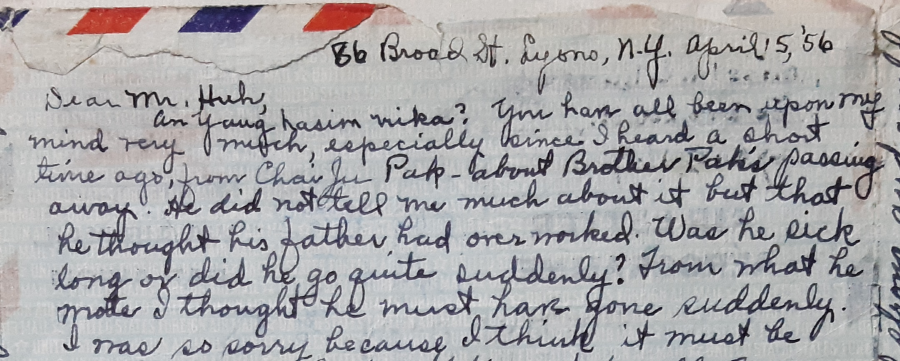 86 Broad St. Lyons, N.Y. April 5, '56
Dear Mr. Huh,
An Yaug hasim nika? You have all been upon my
mind very much, especially since I heard a short
time ago, from Chai Ju Pak - about Brother Pak's passing
away. He did not tell me much about it but that
he thought his father had over worked. Was he sick
long or did he go quite suddenly? From what he
wrote I thought he must have gone suddenly.
I was so sorry because I think it must be